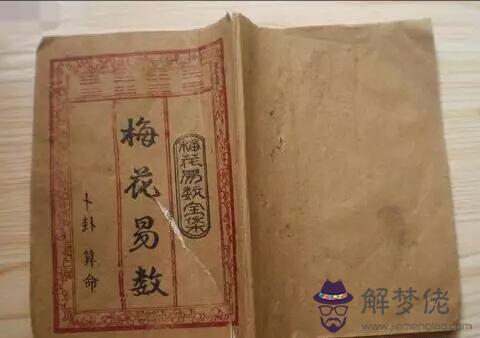 梅花易数全集
梅花易数
卜卦 算命
解梦佬
www.jiemenglao.com